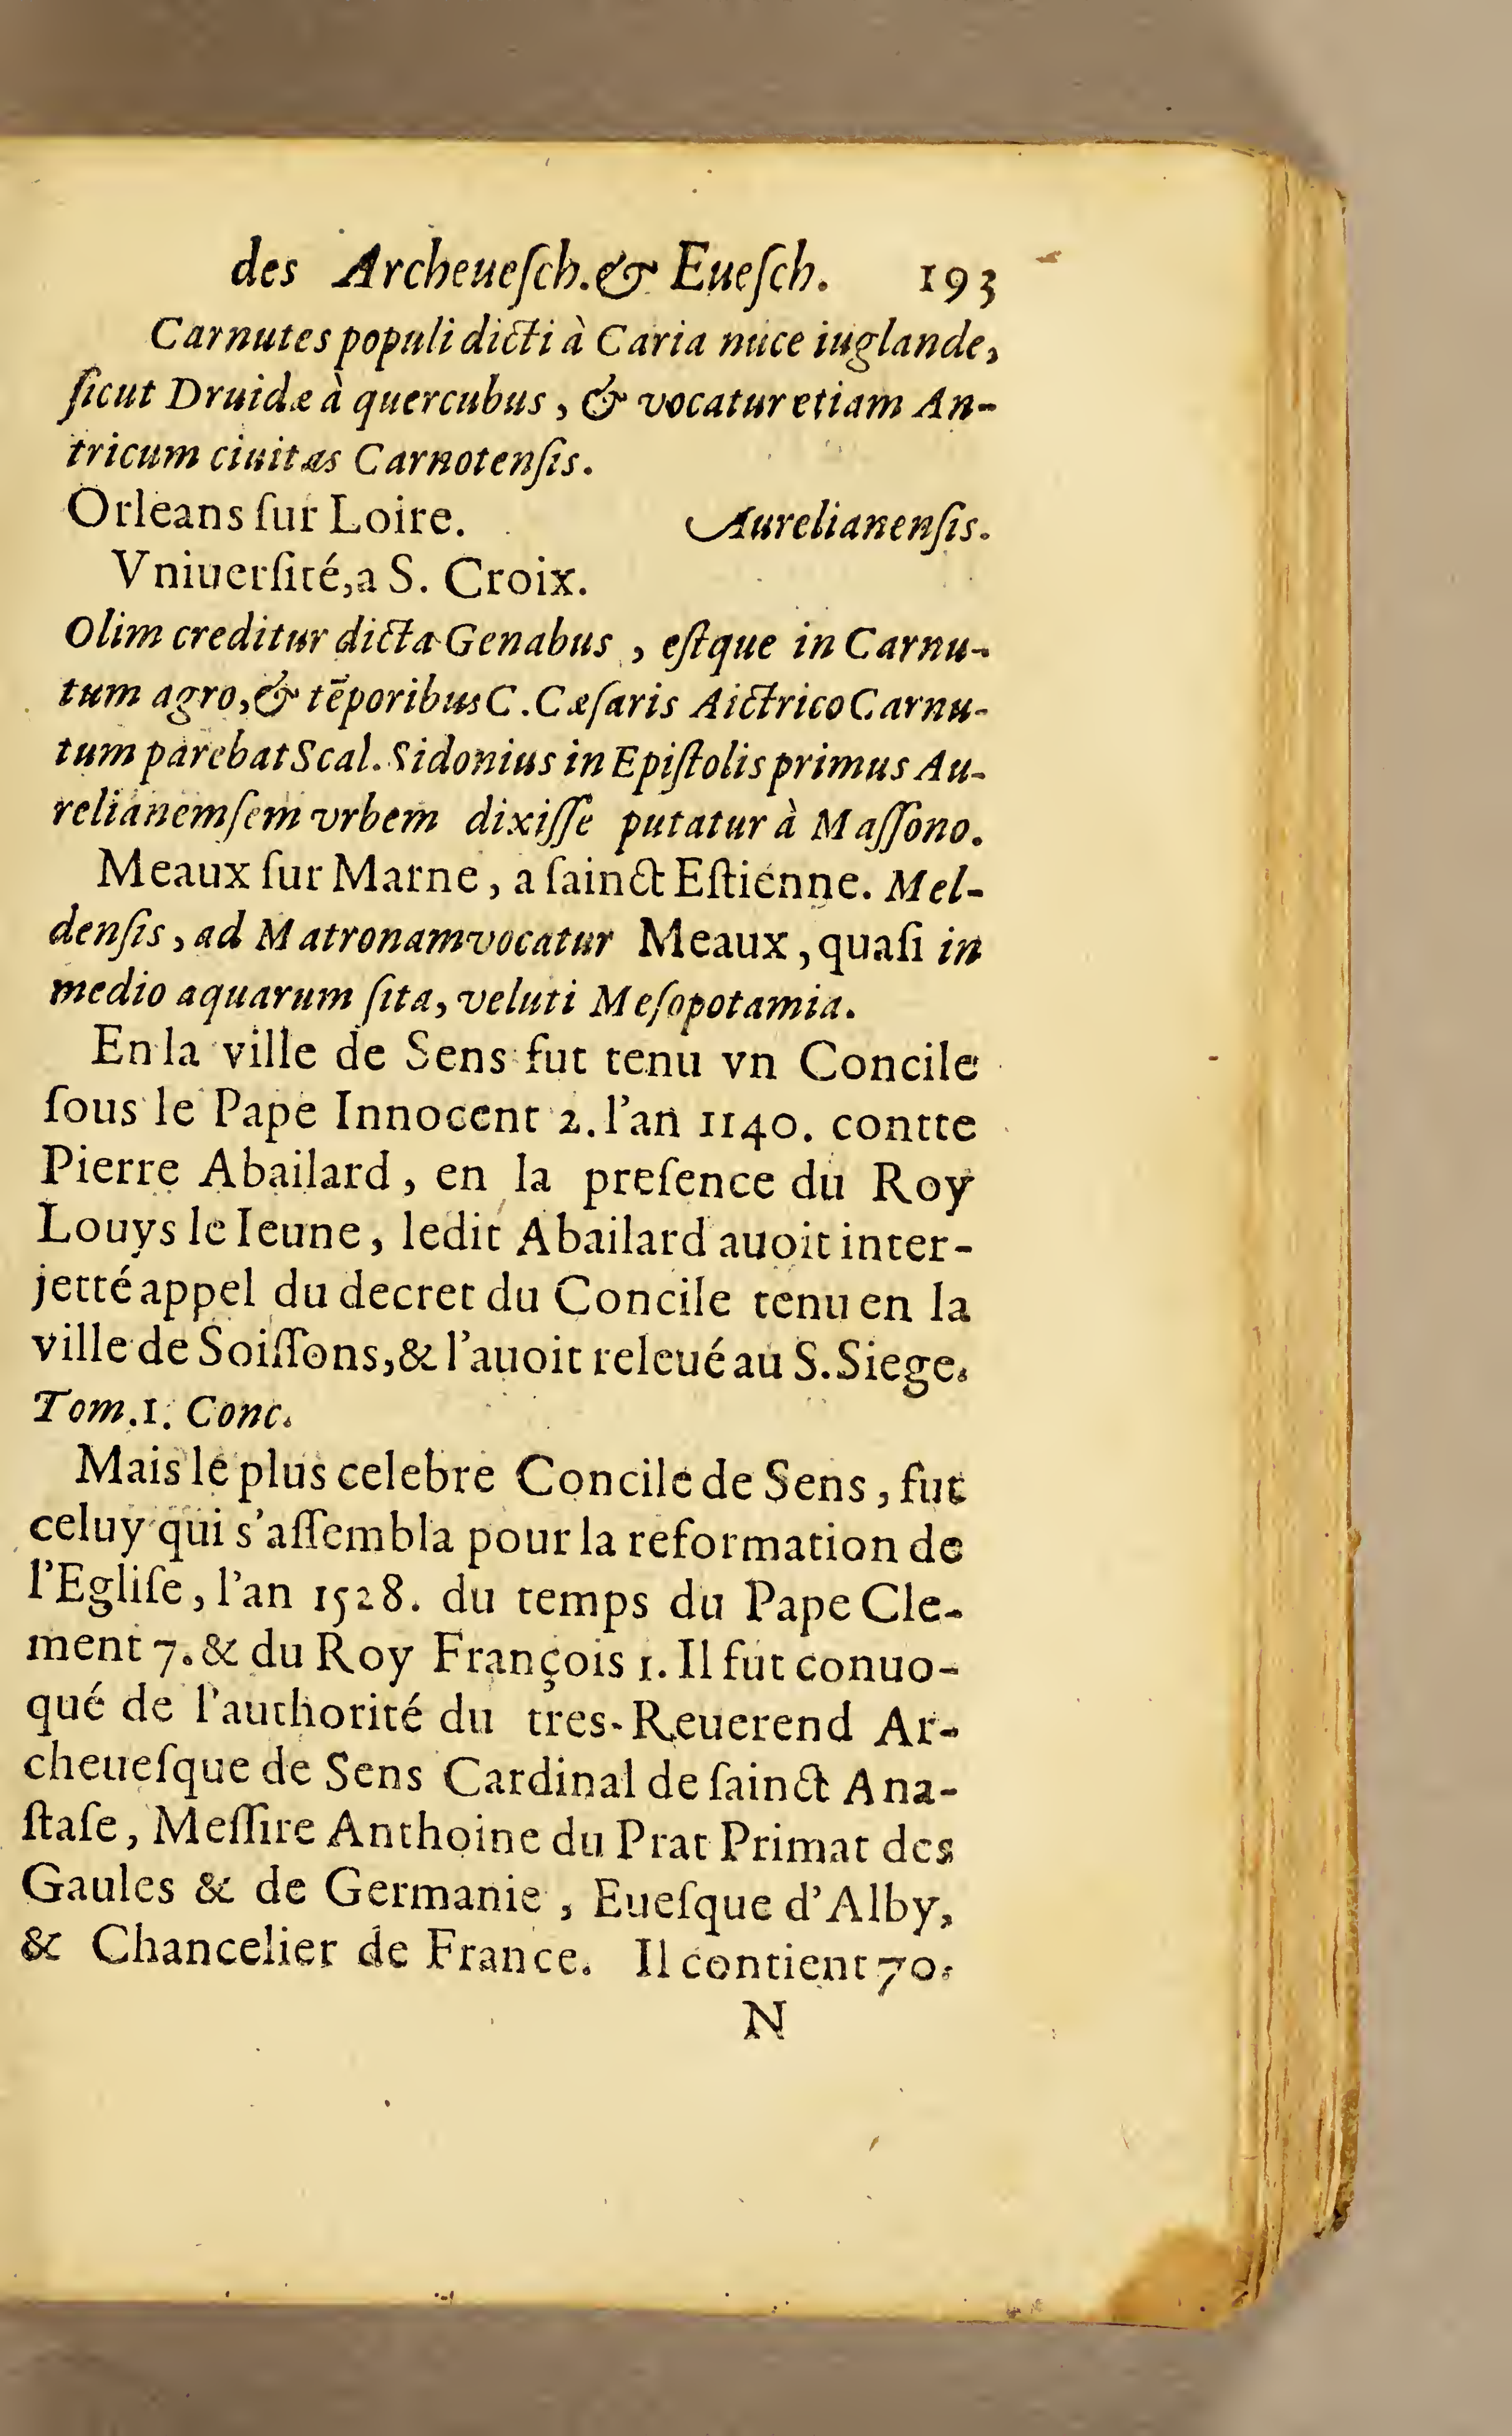 des Archeueſch. & Eueſch. 193
Carnutes populi dicti à Caria nuce iuglande,
ſicut Druidæ à quercubus, & vocatur etiam An-
tricum ciuitas Carnotenſis.
Orleans ſur Loire. Aurelianenſis.
Vniuerſité, a S. Croix.
Olim creditur dicta Genabus, eſtque in Carnu-
tum agro, & tēporibus C. Cæſaris Aictrico Carnu-
tum parebat Scal. Sidonius in Epiſtolis primus Au-
relianemſem vrbem dixiſſe putatur à Maſſono.
Meaux ſur Marne, a ſainct Eſtienne. Mel-
denſis, ad Matronam vocatur Meaux, quaſi in
medio aquarum ſita, veluti Meſopotamia.
En la ville de Sens fut tenu vn Concile
ſous le Pape Innocent 2. l'an 1140. contte
Pierre Abailard, en la preſence du Roy
Louys le Ieune, ledit Abailard auoit inter-
jetté appel du decret du Concile tenu en la
ville de Soiſſons, & l'auoit releué au S. Siege.
Tom. 1. Conc.
Mais le plus celebre Concile de Sens, fut
celuy qui s'aſſembla pour la reformation de
l'Egliſe, l'an 1528. du temps du Pape Cle-
ment 7. & du Roy François 1. Il fut conuo-
qué de l'authorité du tres-Reuerend Ar-
cheueſque de Sens Cardinal de ſainct Ana-
ſtaſe, Meſſire Anthoine du Prat Primat des
Gaules & de Germanie, Eueſque d'Alby,
& Chancelier de France. Il contient 70.
N